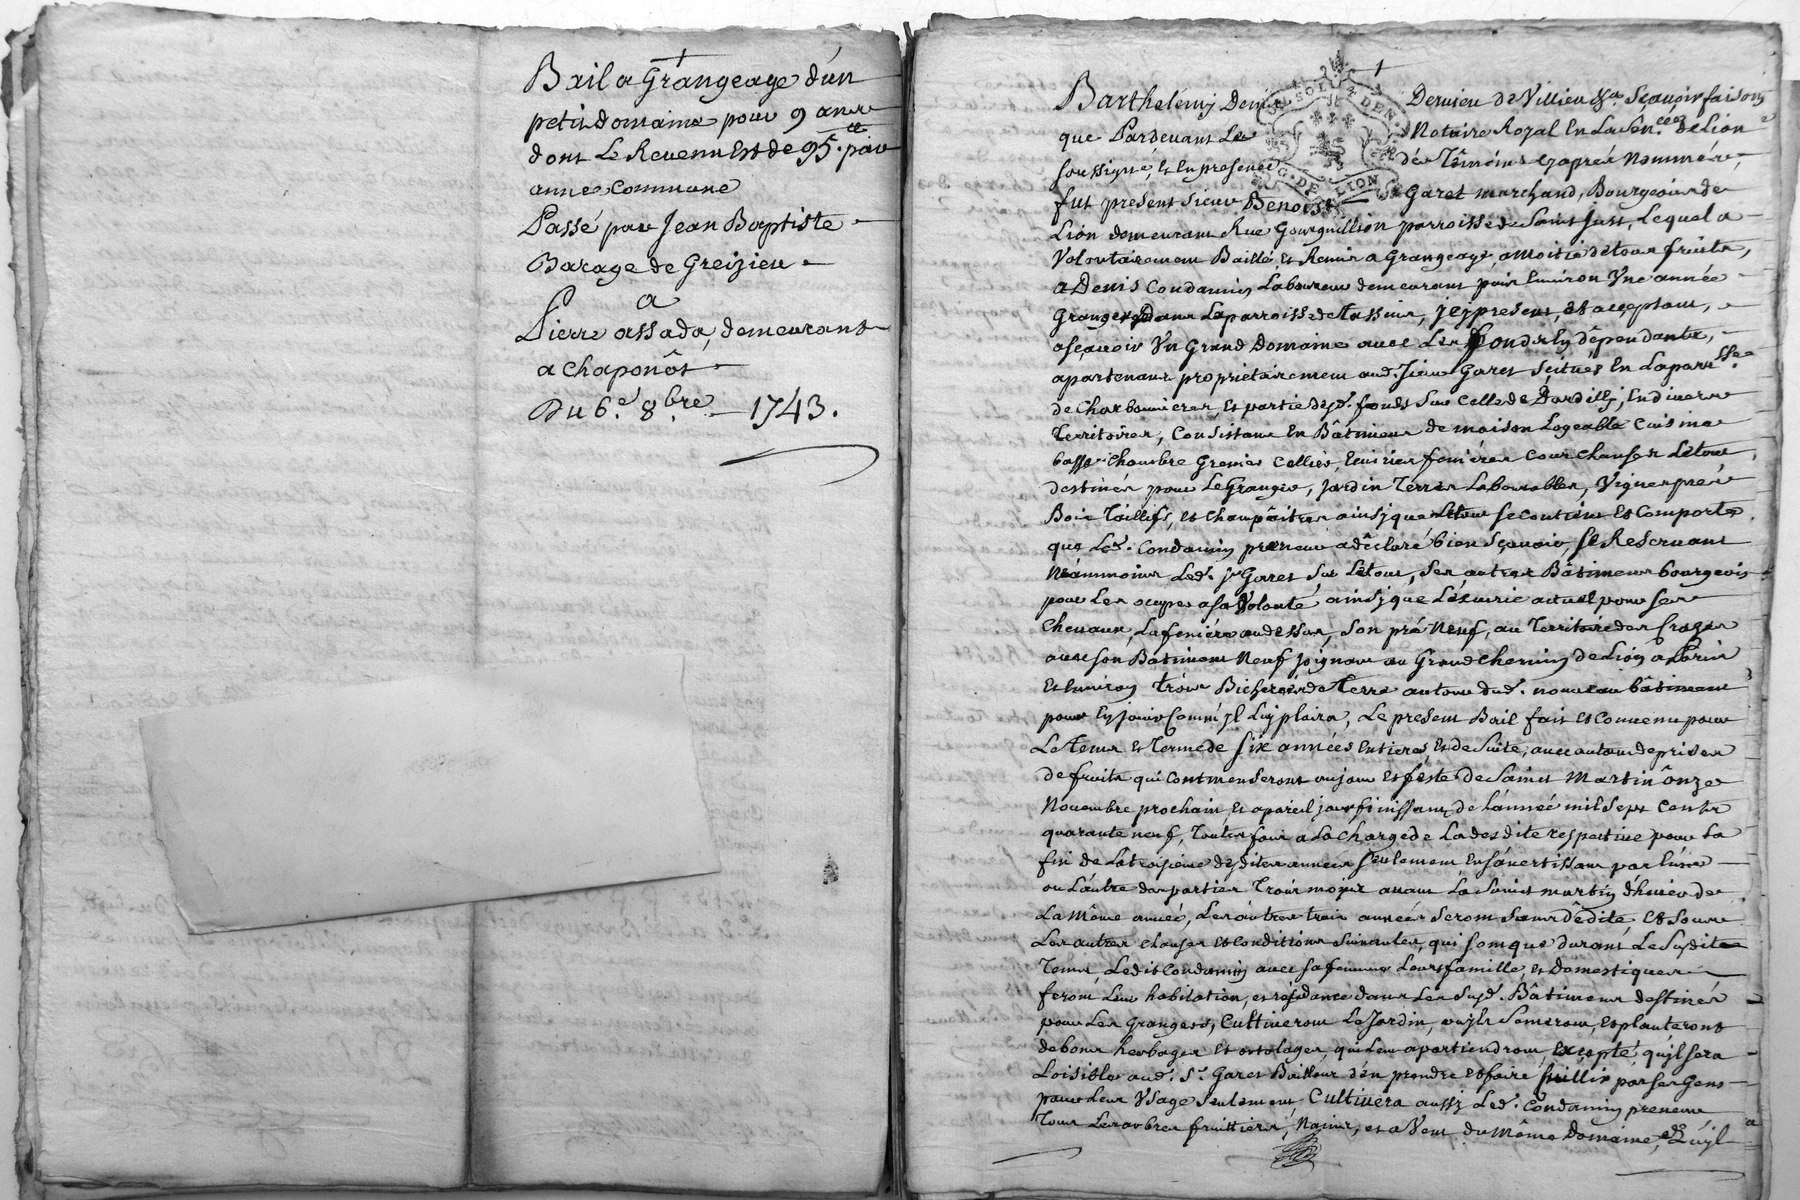 Bail a Grangeage d'un
petit domaine pour 9 années
dont Le Revenu Est de 95.ll par
année commune
Passé par Jean Baptiste
Barage de Greizieu
a
Pierre assada, demeurant
a Chaponôst
Du 6.e 8bre 1743.
Barthelémy Dem Dervieu de Villieu Sçavoir faisons
que Pardevant Le Notaire Royal En La Sen.cée de Lion
soussigné, et En presence dés Témoins cy aprés Nommés,
fut présent sieur Benoist Garet marchand, Bourgeois de
SOL DEN
G. DE LION
Lion demeurant Rue Gourguillion parroisse de Saint Just, Lequel a
Volontairement Baillé, et Remis a Grangeage, a moitié de tous fruits,
a Denis Condamin Laboureur demeurant puis Environ Une année
Granger dans La parroisse de Tassins, icy present, et acceptant,
asçavoir Un Grand Domaine avec Les fonds En dépendants,
apartenant proprietairement aud. Sieur Garet Scitués En La parr.sse
de Charbonnieres, et partie desd. fonds Sur Celle de Dardilly, En divers
Territoires, Consistant En Bâtiment de maison Logeable Cuisine
basse Chambre Grenier Cellier, Ecuries feniéres Cour Chauser Létout
destinés pour Le Granger, Jardin Terres Labourables, Vignes prés
Bois Taillifs, et Champêitres ainsy que Létout se contient et Comporte
que Led. Condamin preneur a déclaré bien Sçavoir, Se Reservant
Néammoins Led. Sr Garet Sur Létout, Ses autres Bâtiments bourgeois
pour Les ocuper a sa Volonté ainsy que L'écurie actuel pour ses
Chevaux, La feniére au dessus, Son pré Neuf, au Territoire des
avec son Bâtiment Neuf joignant au Grand Chemin de Lion a Paris
et Environ trois Bicherées de Terre autour dud. nouveau bâtiment
pour En jouir Comm'il Luy plaira, Le present Bail fait et Convenu pour
Le Tems et Terme de Six années Entieres et de Suite, avec autant de prises
de fruits qui Commenseront au jour et féste de Saint Martin ônze
Novembre prochain, et a pareil jour finissant, de L'année mil Sept Cents
quarante neuf, Toutes fois a La Charge de La desdite respective pour La
fin de La troisiéme desdites années Seulement En S'avertissant par L'une
ou L'autre des parties Trois mois avant La Saint martin d'hiver de
La même année, Les autres trois années Seront Sans dédite, et Sous
Les autres Clauses et Conditions Suivantes, qui Sont que Durant Le Susdit
Tems, Ledit Condamin avec Sa femme Leurs famille, et Domestiques
feront Leur habitation, et résidance dans Les Susd. Bâtiments destinés
pour Les Grangers, Cultiveront Le Jardin, ou yls Semeront, et planteront
de bons herbages et ortolages, qui Leur apartiendront, Excepté qu'yl sera
Loisible aud. Sr Garet Bailleur d'en prendre et faire Cuillir par ses Gens
pour Leur Usage Seulement Cultivera aussy Led. Condamin preneur
Tous Les arbres fruittiers, Nains, et a Vent du même Domaine, Qu'yl